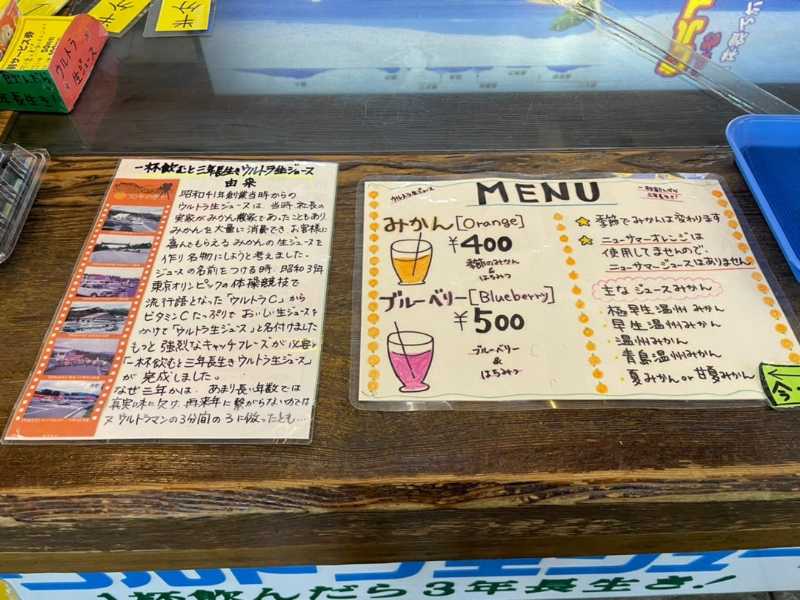 ウルトラ
生ジュース
一杯飲むと三年長生きウルトラ生ジュース
由来
昭和41年創業当時からの
ウルトラ生ジュースは、当時、社長の
実家がみかん農家であったこともあり
みかんを大量に消費でき、お客様に
喜んでもらえるみかんの生ジュースを
作り名物にしようと考えました。
ジュースの名前をつける時、昭和39年
東京オリンピックの体操競技で
流行語となった「ウルトラC」から
ビタミンCたっぷりでおいしい生ジュースを
かけて「ウルトラ生ジュース」と名付けました
もっと強烈なキャッチフレーズが必要と
「一杯飲むと三年長生きウルトラ生ジュース」
が完成しました。
なぜ三年かは、あまり長い年数では
真実味に欠け、再来年に繋がらないのでは
ウルトラマンの3分間の3に倣ったとも…
ウルトラ生ジュース
MENU
みかん[Orange]
¥400
季節のみかん
&
はちみつ
ブルーベリー[Blueberry]
¥500
ブルーベリー
&
はちみつ
季節でみかんは変わります
ニューサマーオレンジは
使用してませんので、
ニューサマージュースはありません
主なジュースみかん
極早生温州みかん
早生温州みかん
温州みかん
青島温州みかん
夏みかんor甘夏みかん
今
ウルトラ生ジュー
1杯飲んだら3年長生き!